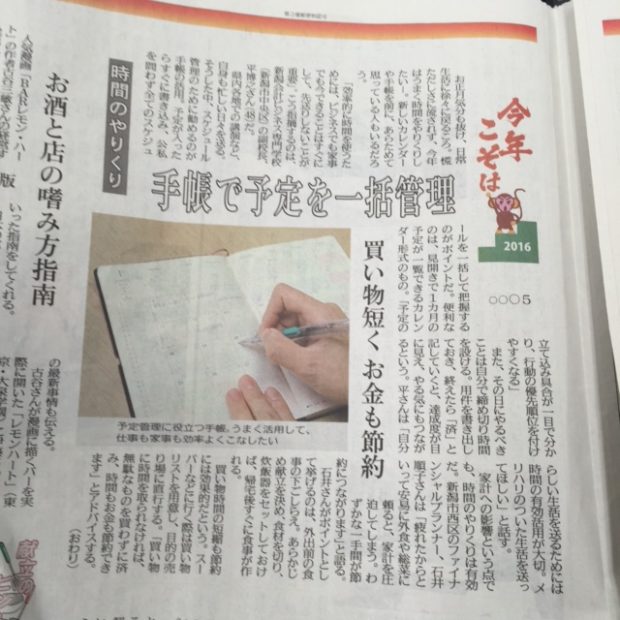 今年こそは
2016
○○○5
手帳で予定を一括管理
時間のやりくり
買い物短く お金も節約
お正月気分も抜け、日常
生活に徐々に戻るころ。慌
ただしさに流されず、今年
はうまく時間をやりくりし
たい―。新しいカレンダー
や手帳を前に、あらためて
思っている人もいるだろ
う。
「効率的に時間を使うた
めには、ビジネスでも家事
でもできることはすぐに
やって、先送りしないのが
重要」。こう指摘するのは、
新潟会計ビジネス専門学校
(新潟市中央区)の副校長、
平博之さん(48)だ。
県内各地での講演など、
自身も忙しい日々を送る。
そうした中、スケジュール
管理のために勧めるのが
手帳の活用。予定が入った
らすぐに書き込み、公私
を問わず全てのスケジュ
ールを一括して把握する
のがポイントだ。便利な
のは、見開きで1カ月の
予定が一覧できるカレン
ダー形式のもの。「予定の
立て込み具合が一目で分か
り、行動の優先順位を付け
やすくなる」
また、その日にやるべき
ことは自分で締め切り時間
を設ける。用件を書き出し
ておき、終えたら「済」と
記していくと、達成度が目
に見え、やる気にもつなが
るという。平さんは「自分
らしい生活を送るためには
時間の有効活用が大切。メ
リハリのついた生活を送っ
てほしい」と話す。
家計への影響という点で
も、時間のやりくりは有効
だ。新潟市西区のファイナ
ンシャルプランナー、石井
順子さんは「疲れたからと
いって安易に外食や総菜に
頼ると、家計を圧
迫してしまう。わ
ずかな一手間が節
約につながります」と語る。
石井さんがポイントとし
て挙げるのは、外出前の食
事の下ごしらえ。あらかじ
め献立を決め、食材を切り、
炊飯器をセットしておけ
ば、帰宅後すぐに食事が作
れる。
買い物時間の短縮も節約
には効果的だという。スー
パーなどに行く際は買い物
リストを用意し、目的の売
り場に直行する。「買い物
に時間を取られなければ、
無駄なものを買わずに済
み、時間もお金も節約でき
ます」とアドバイスする。
(おわり)
予定管理に役立つ手帳。うまく活用して、
仕事も家事も効率よくこなしたい
お酒と店の嗜み方指南
人気漫画「BARレモン・ハー
ト」の作者古谷三敏さんが経営す
版
いった指南をしてくれる。
の最新事情も伝える。
古谷さんが漫画に描くバーを実
際に開いた「レモンハート」(東
献立の